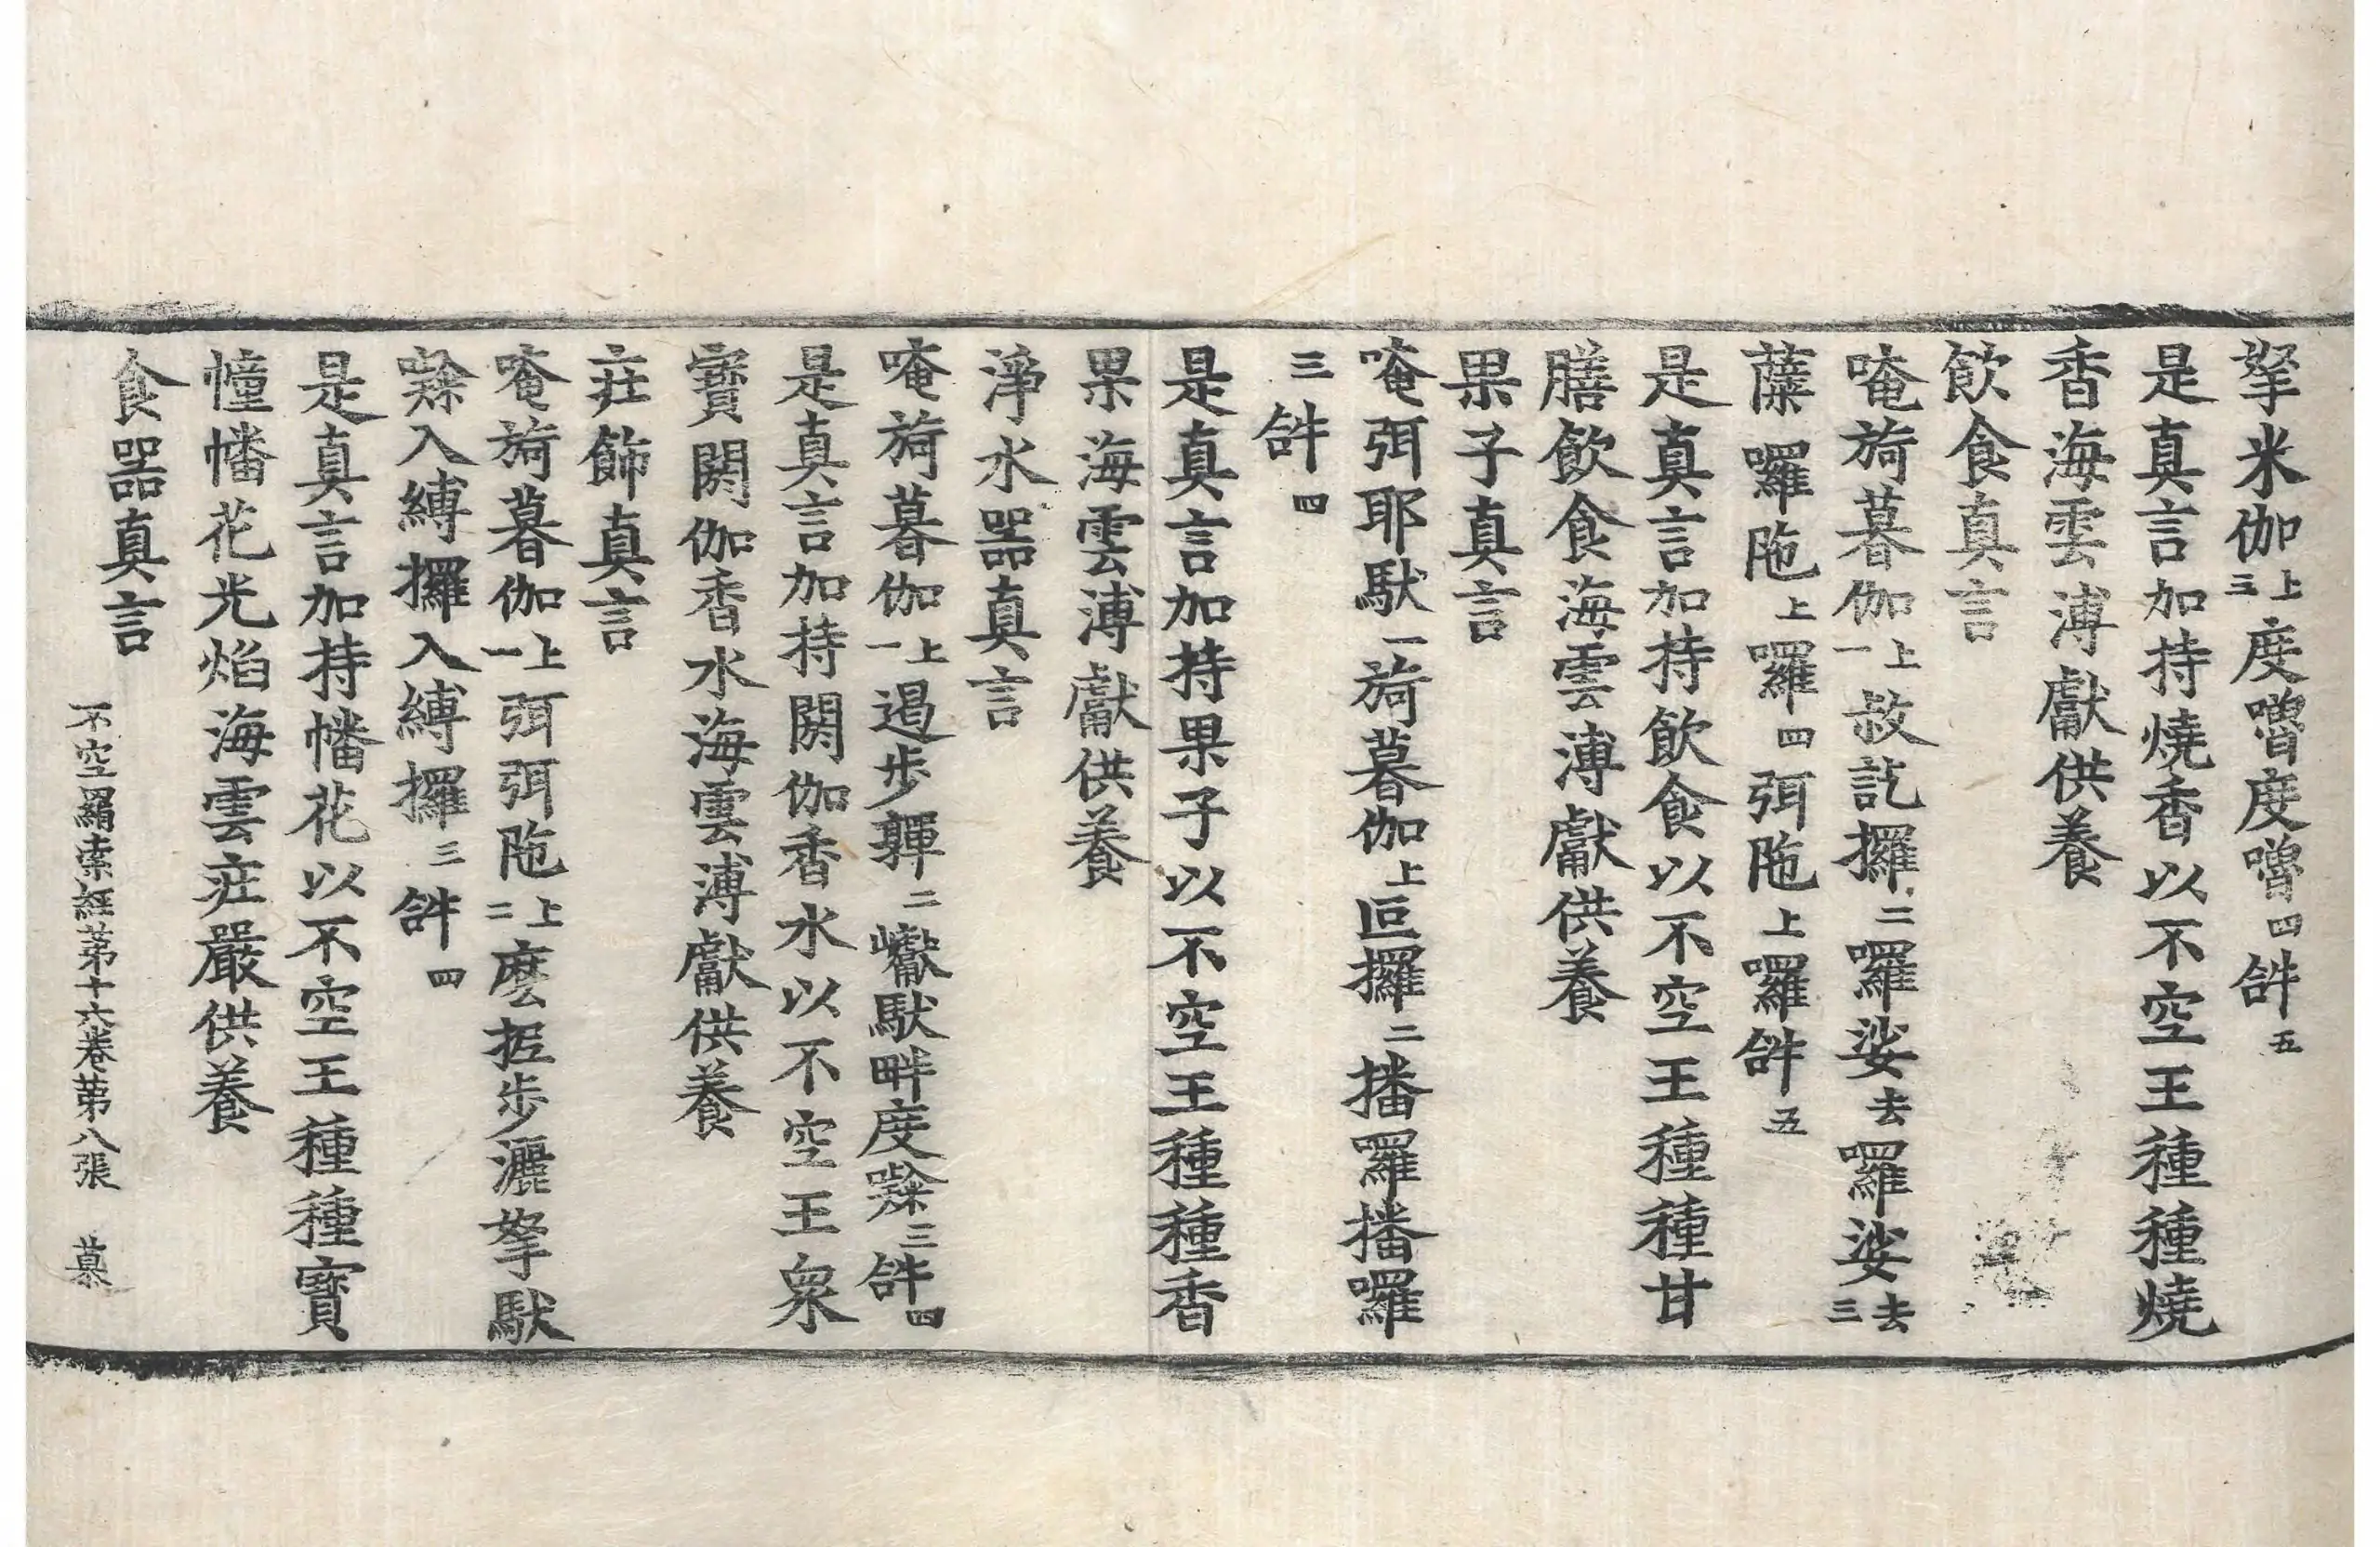 拏米伽上三度嚕度嚕四𤙖五
是真言加持燒香以不空王種種燒
香海雲溥獻供養
飲食真言
唵旖暮伽上一敍訖攞二囉娑去囉娑去三
蘖囉陁上囉四弭陁上囉𤙖五
是真言加持飲食以不空王種種甘
膳飲食海雲溥獻供養
果子真言
唵弭耶馱一旖暮伽上叵攞二播囉播囉
三𤙖四
是真言加持果子以不空王種種香
果海雲溥獻供養
淨水器真言
唵旖暮伽上一遏步鞸二巘馱畔度𡃤三𤙖四
是真言加持閼伽香水以不空王衆
寶閼伽香水海雲溥獻供養
莊飾真言
唵旖暮伽上一弭弭陁上二麽抳步灑拏馱
𡃤入縛攞入縛攞三𤙖四
是真言加持幡花以不空王種種寶
幢幡花光焰海雲莊嚴供養
食器真言
不空羂索經第十六卷第八張 慕